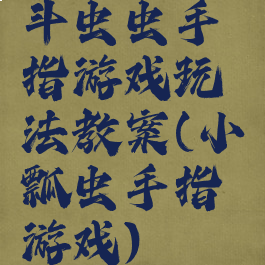 斗虫虫手
指游戏玩
法教案(小
瓢虫手指
游戏)